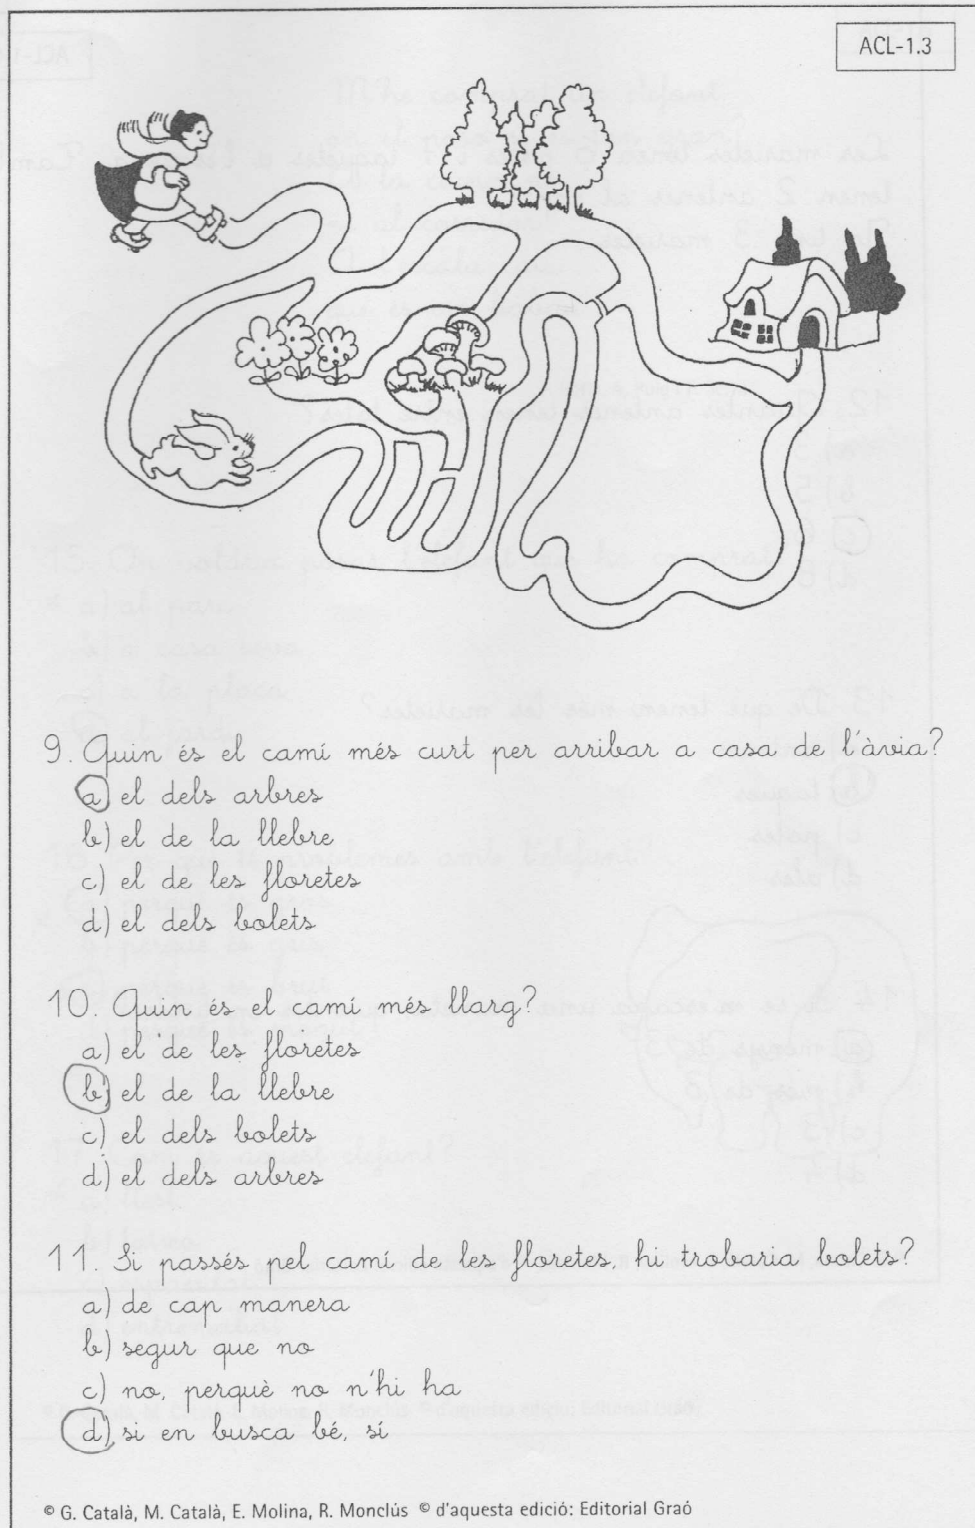 ACL-1.3
9. Quin és el camí més curt per arribar a casa de l'àvia?
a) el dels arbres
b) el de la llebre
c) el de les floretes
d) el dels bolets
10. Quin és el camí més llarg?
a) el de les floretes
b) el de la llebre
c) el dels bolets
d) el dels arbres
11. Si passés pel camí de les floretes, hi trobaria bolets?
a) de cap manera
b) segur que no
c) no, perquè no n'hi ha
d) si en busca bé, sí
© G. Català, M. Català, E. Molina, R. Monclús © d'aquesta edició: Editorial Graó